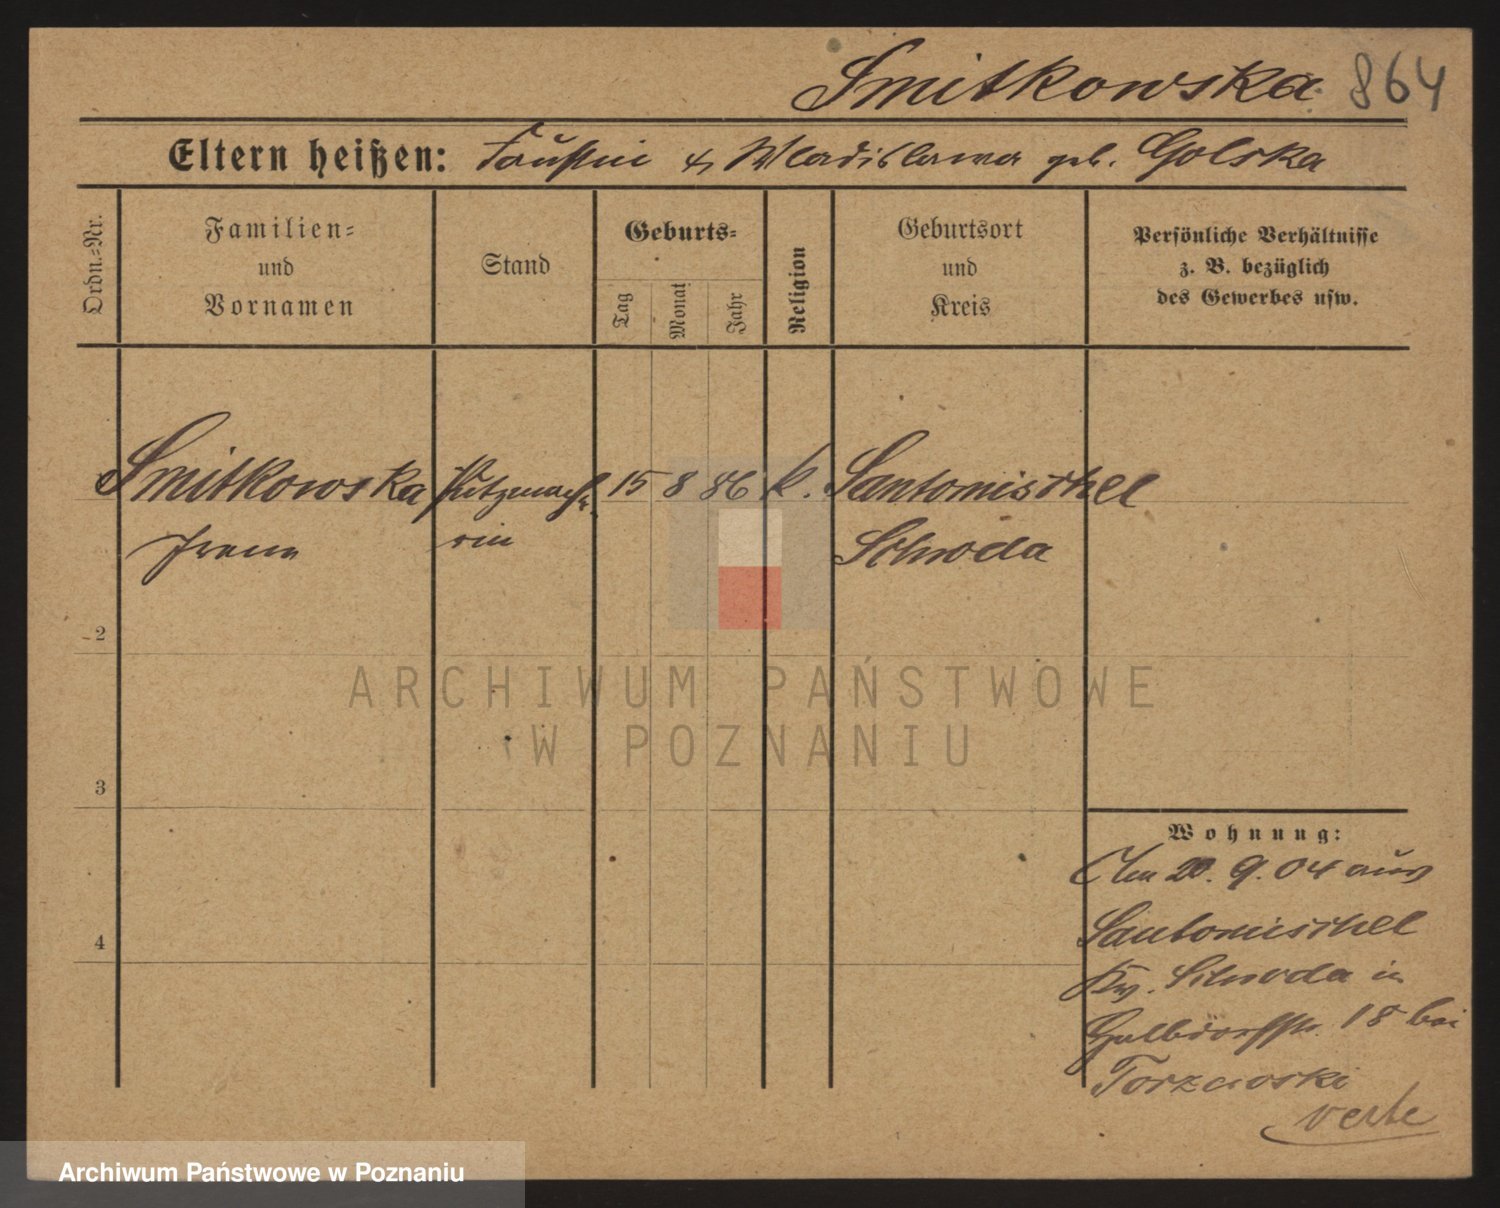 Smitkowska 864
Eltern heißen: Faustin & Wladislawa geb. Golska
Ordn.-Nr.
Familien-
und
Vornamen
Stand
Geburts-
Tag
Monat
Jahr
Religion
Geburtsort
und
Kreis
Persönliche Verhältnisse
z. B. bezüglich
des Gewerbes usw.
Smitkowska Putzmache- 15 8 86 k. Santomischel
Irena rin Schroda
2
3
4
Wohnung:
Am 20. 9. 04 aus
Santomischel
Schroda in
Halbdorfstr. 18 bei
verte
ARCHIWUM PAŃSTWOWE
W POZNANIU
Archiwum Państwowe w Poznaniu